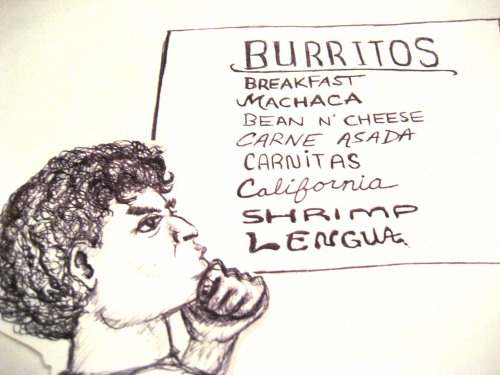 BURRITOS
BREAKFAST
MACHACA
BEAN N' CHEESE
CARNE ASADA
CARNiTAS
California
SHRIMP
LENGUA